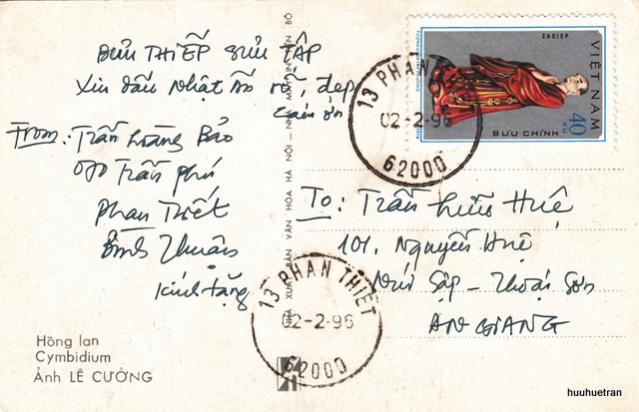 BƯU THIẾP SƯU TẬP
Xin dấu Nhật Ấn rõ, đẹp
Cám ơn
From: Trần Hoàng Bảo
70 Trần Phú
Phan Thiết
Bình Thuận
Kính tặng
Hồng lan
Cymbidium
Ảnh LÊ CƯỜNG
XUẤT BẢN VĂN HÓA HÀ NỘI - BỘ
CAOIEP
VIỆT NAM
40 XU
BƯU CHÍNH
13 PHAN
02-2-96
62000
To: Trần Hữu Huệ
101. Nguyễn Huệ
Núi Sập - Thoại Sơn
AN GIANG
13 PHAN THIẾT
02-2-96
62000
huuhuetran